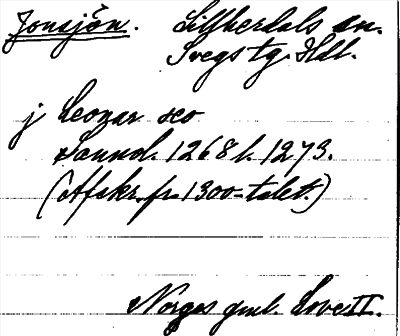 Jonsjön. Lillherdals sn.
Svegs tg. Hdl.
j Leonar seo
sannol. 1268 l. 1273.
(Afskr. fr. 1300-talet.)
Norges gml. Love II.